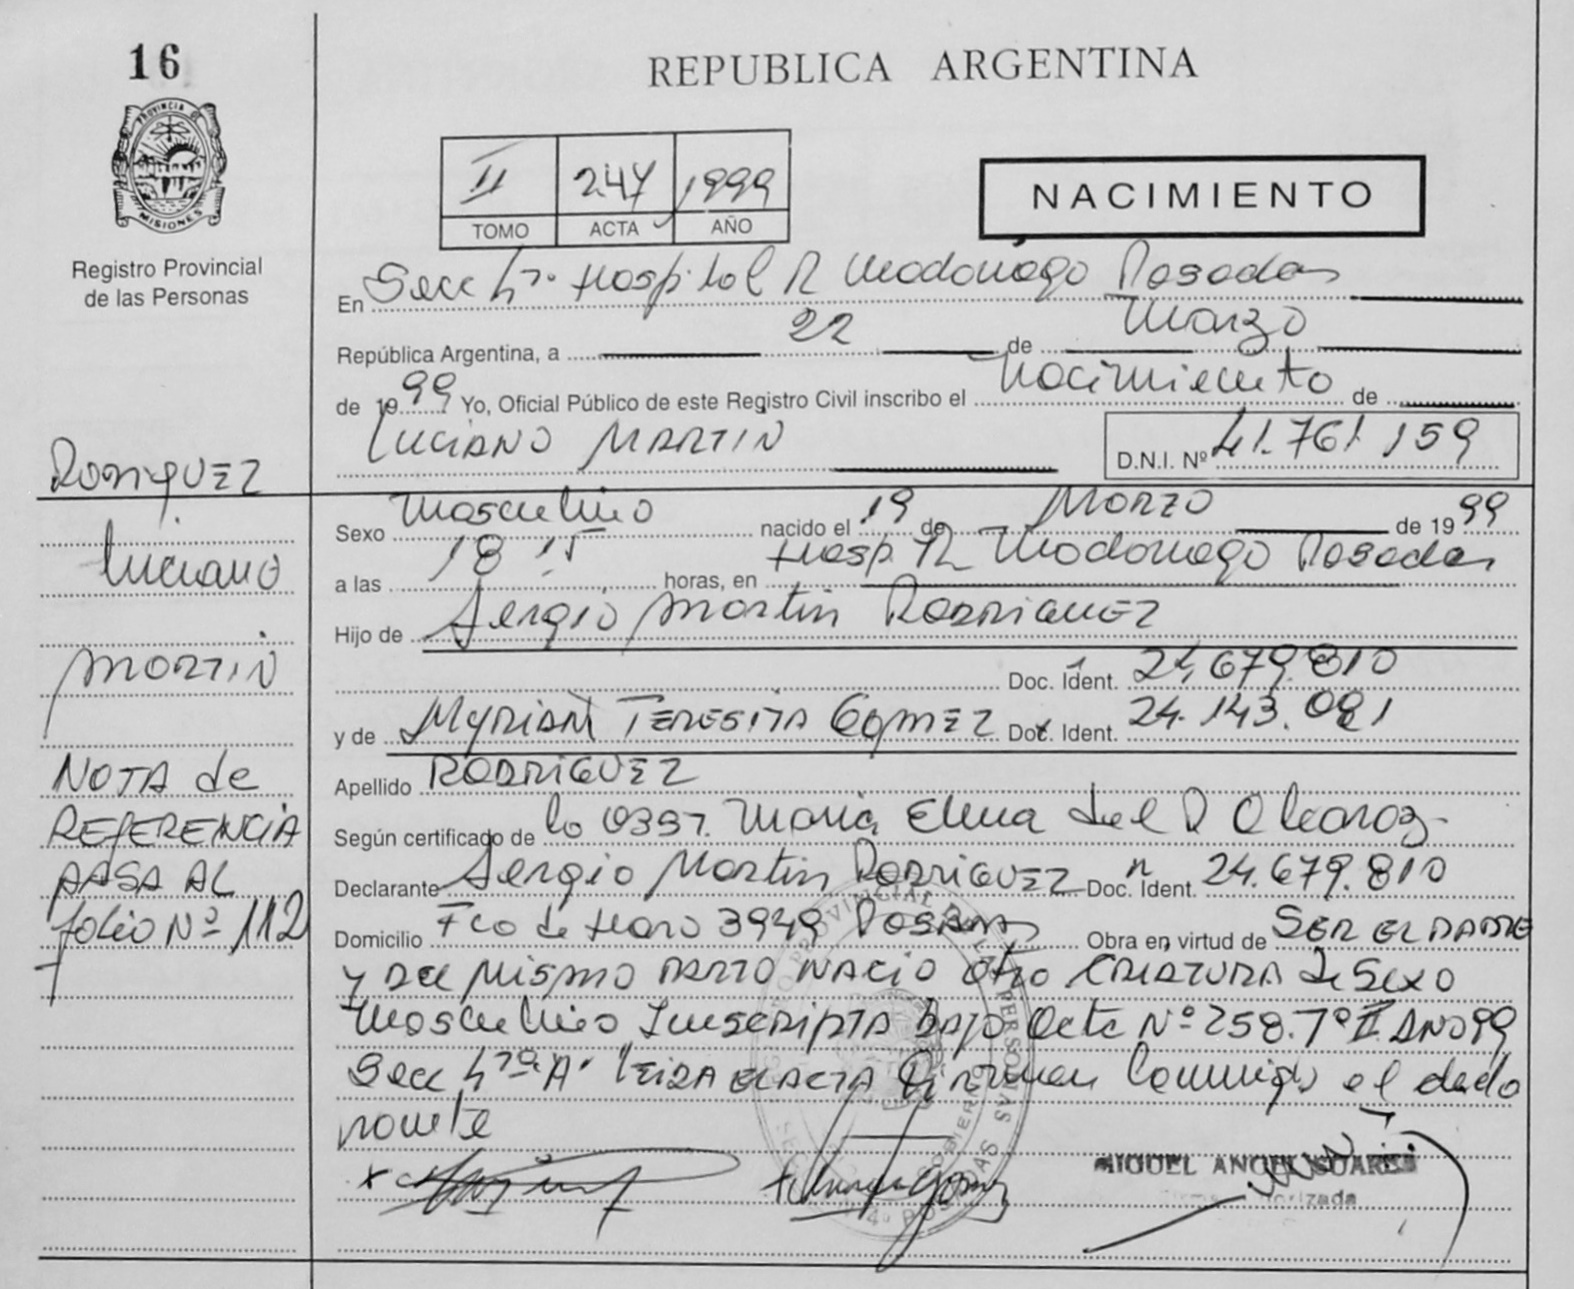 16
REPUBLICA ARGENTINA
PROVINCIA DE MISIONES
Registro Provincial
de las Personas
II 247 1999
TOMO ACTA AÑO
NACIMIENTO
En Secc 4ta Hospital R Madariaga Posadas
República Argentina, a 22 de Marzo
de 1999 Yo, Oficial Público de este Registro Civil inscribo el Nacimiento de
LUCIANO MARTIN
D.N.I. Nº 41.761.159
RODRIGUEZ
Luciano
MARTIN
NOTA de
REFERENCIA
PASA AL
folio Nº 112
Sexo Masculino nacido el 19 de Marzo de 1999
a las 18 15 horas, en Hosp. R Madariaga Posadas
Hijo de Sergio Martin RODRIGUEZ
Doc. Ident. 24.679.810
y de MYRIAM TERESITA GOMEZ Doc. Ident. 24.143.091
Apellido RODRIGUEZ
Según certificado de la Maria Elena del Alcaraz
Declarante Sergio Martin RODRIGUEZ Doc. Ident. 24.679.810
Domicilio Fco de Haro 3949 POSADAS Obra en virtud de SER EL PADRE
y DEL MISMO PARTO NACIO otro CRIATURA de Sexo
Masculino Inscripta BAJO Acta Nº 258. Tº II AÑO 99
Secc 4ta LEIDA EL ACTA Firman Conmigo el decla
rante
MIGUEL ANGEL SUAREZ
Firma Autorizada